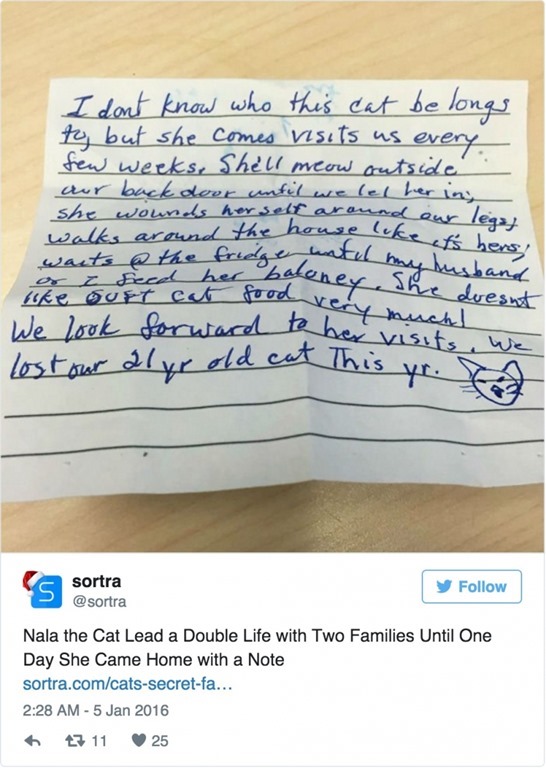 I dont know who this cat belongs
to, but she comes visits us every
few weeks. She'll meow outside
our back door until we let her in,
she wounds herself around our legs,
walks around the house like it's hers,
waits @ the friedge until my husband
or I feed her baloney. She doesnt
like OUR cat food very much!
We look forward to her visits. We
lost our 21 yr old cat This yr.
sortra
@sortra
Follow
Nala the Cat Lead a Double Life with Two Families Until One
Day She Came Home with a Note
sortra.com/cats-secret-fa…
2:28 AM - 5 Jan 2016
11
25